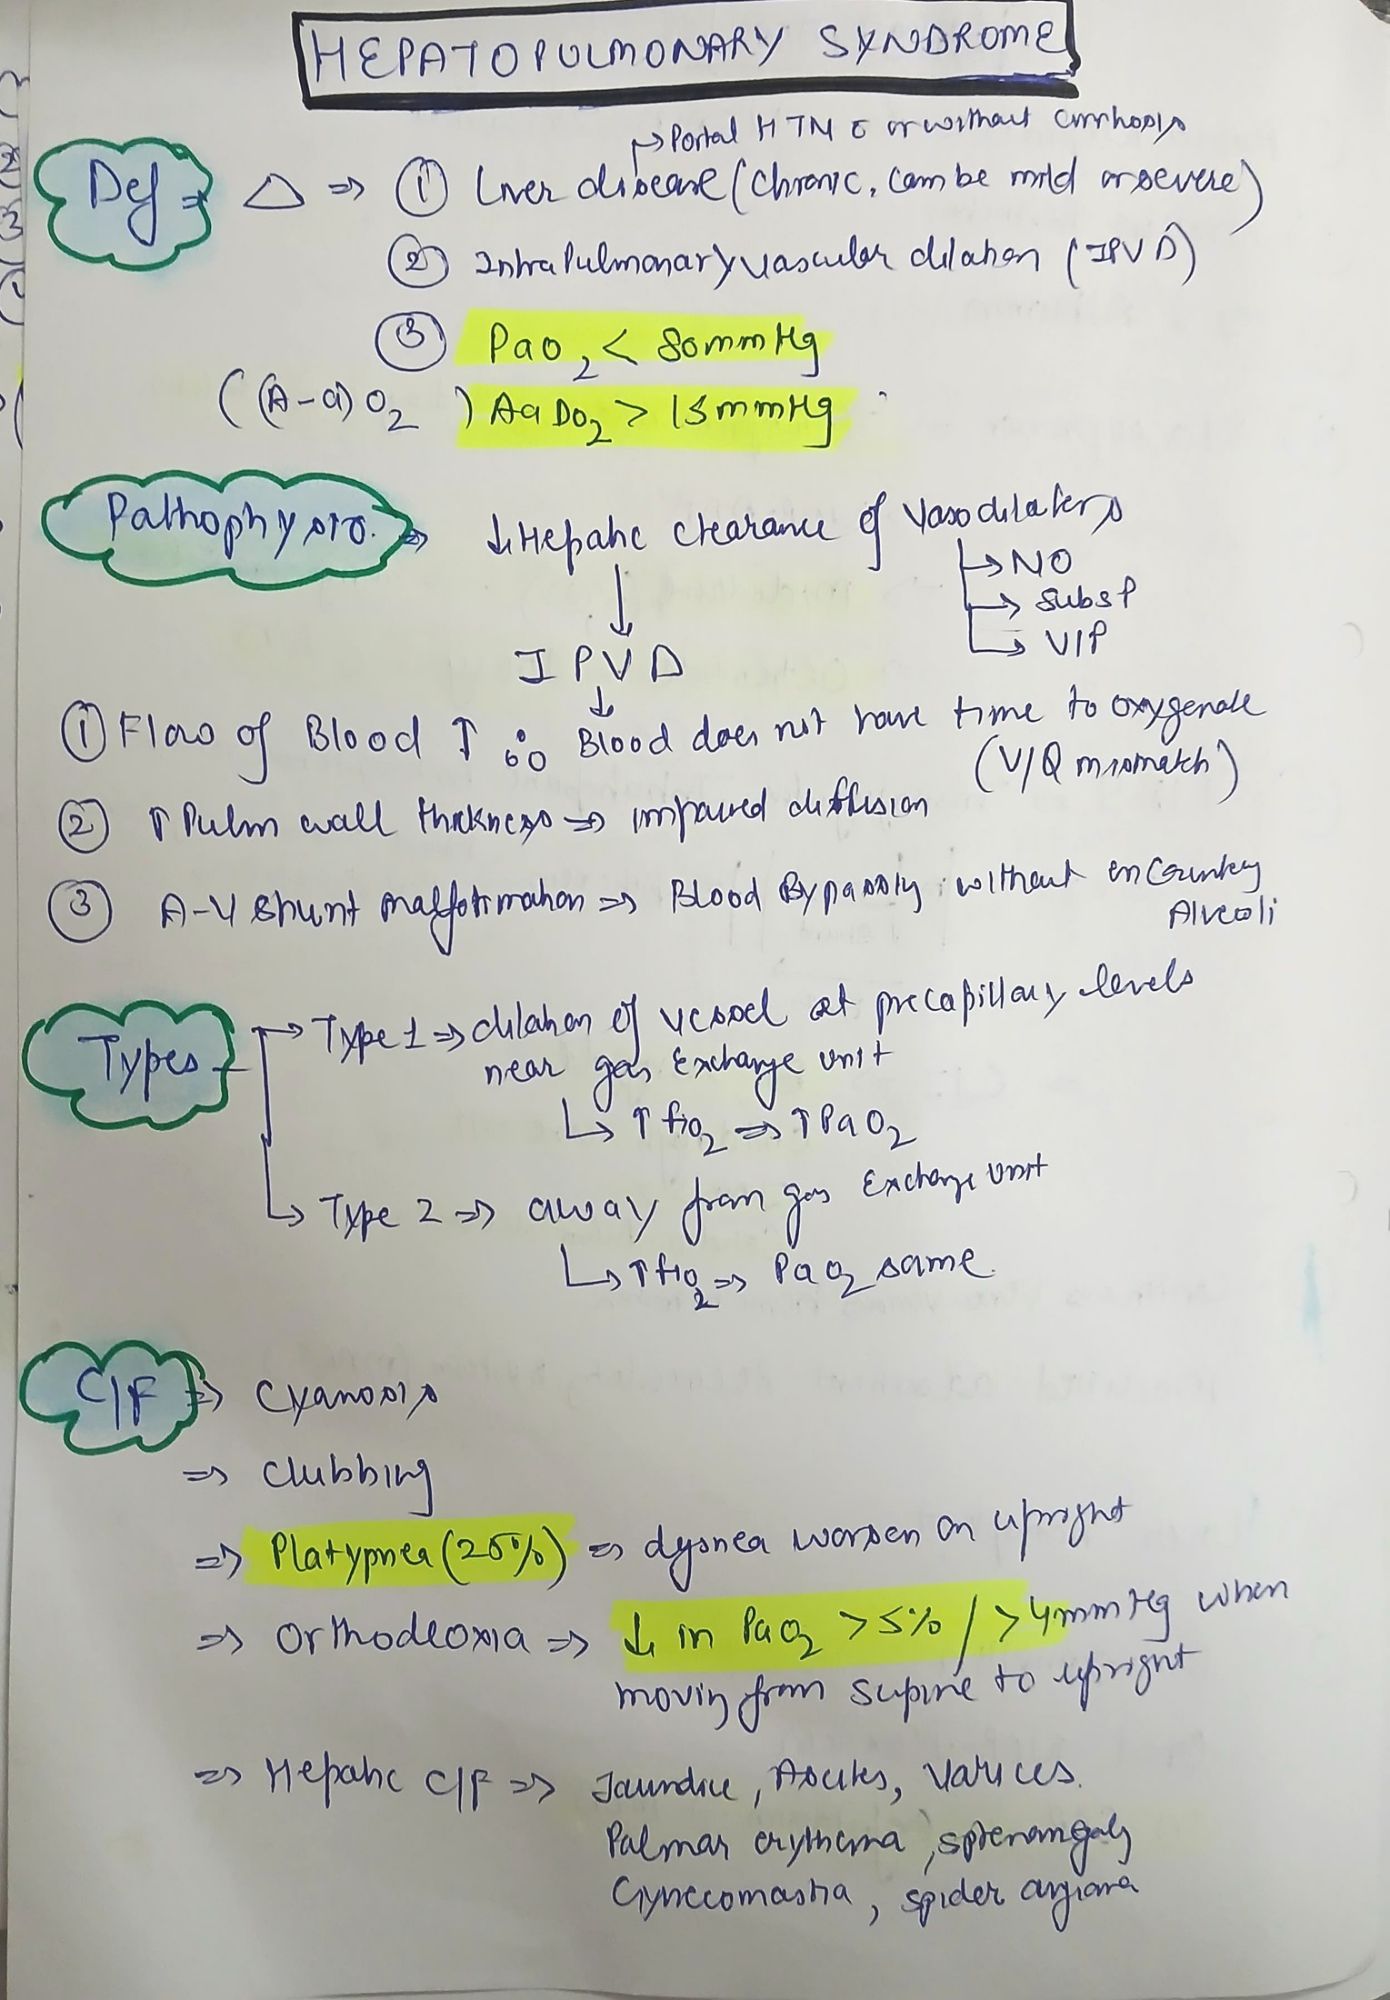 HEPATOPULMONARY SYNDROME
→ Portal HTN c̄ or without cirrhosis
Def ⇒ △ ⇒ ① Liver disease (chronic, can be mild or severe)
② Intra Pulmonary vascular dilation (IPVD)
③ PaO2 < 80 mmHg
((A-a) O2) AaDO2 > 15 mmHg
Pathophysio. ⇒ ↓ Hepatic clearance of Vasodilators
→ NO
→ Subs P
→ VIP
↓
IPVD
↓
① Flow of Blood ↑ ∴ Blood does not have time to oxygenate
(V/Q mismatch)
② ↑ Pulm wall thickness ⇒ impaired diffusion
③ A-V shunt malformation ⇒ Blood Bypassing without encountering
Alveoli
Types → Type 1 ⇒ dilation of vessel at precapillary levels
near gas Exchange unit
↳ ↑ fio2 ⇒ ↑ PaO2
↳ Type 2 ⇒ away from gas Exchange unit
↳ ↑ fio2 ⇒ PaO2 same.
C/F ⇒ Cyanosis
⇒ Clubbing
⇒ Platypnea (25%) ⇒ dysnea worsen on upright
⇒ Orthodeoxia ⇒ ↓ in PaO2 > 5% / > 4 mmHg when
moving from supine to upright
⇒ Hepatic C/F ⇒ Jaundice, Ascites, Varices.
Palmar erythema, splenomegaly
Gynecomastia, spider angioma